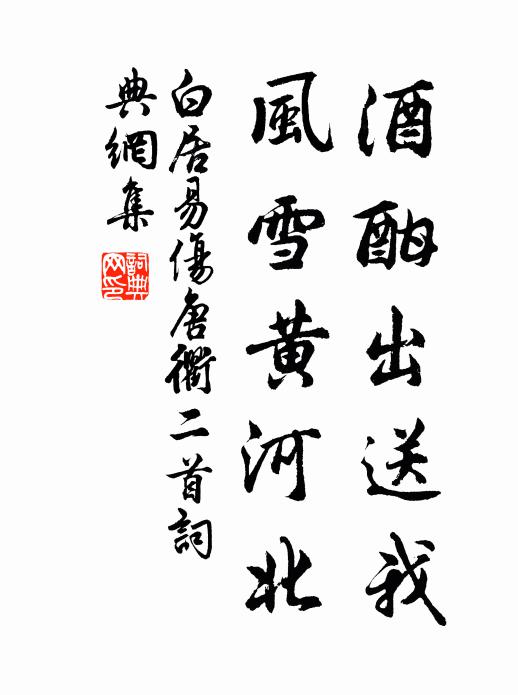 酒酣出送我
風雪黃河北
白居易傷唐衢二首詞
典網集
詞典網印